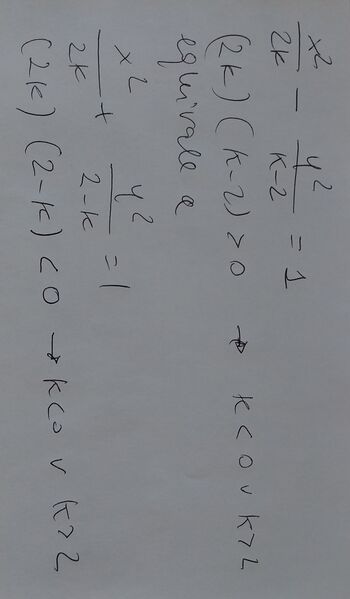 x²/2k - y²/k-2 = 1
(2k)(k-2) > 0 → k < 0 ∨ k > 2
equivale a
x²/2k + y²/2-k = 1
(2k)(2-k) < 0 → k < 0 ∨ k > 2